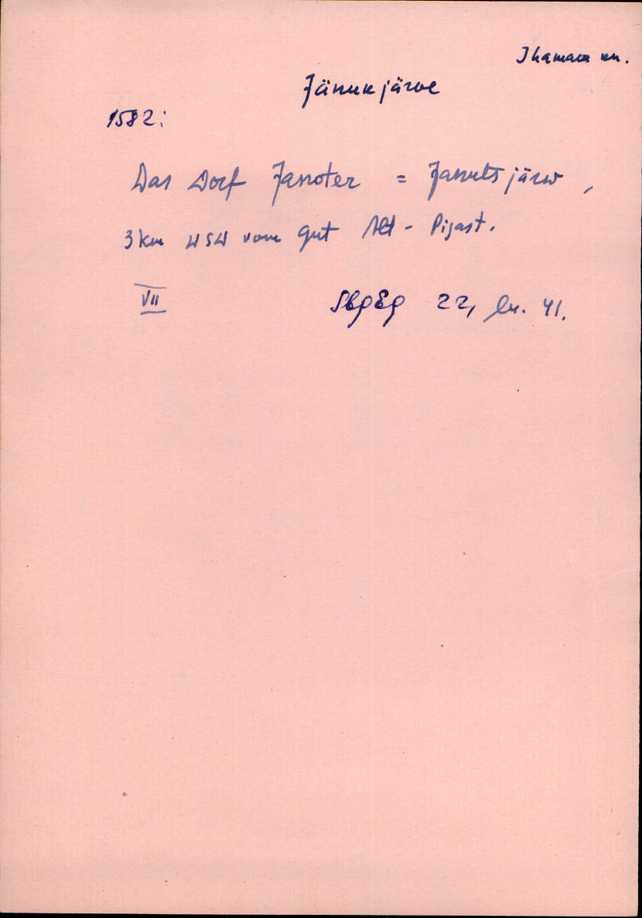 Ihamaru km.
Jänukjärve
1582:
Das Dorf Janoter = Januts järw,
3 km WSW vom Gut Alt-Pigast.
VII
SbGEG 22, lk. 41.